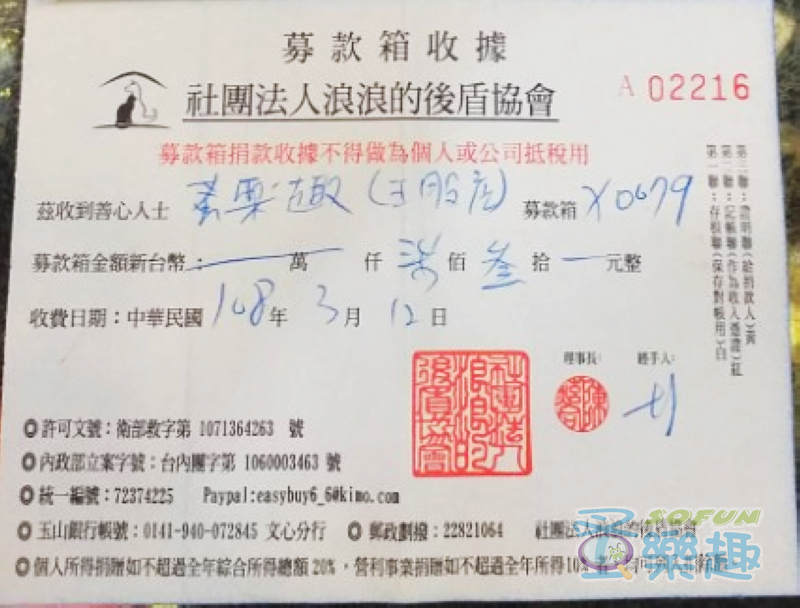 募款箱收據
社團法人浪浪的後盾協會
A 02216
募款箱捐款收據不得做為個人或公司抵稅用
茲收到善心人士 樂趣(玉股店) 募款箱 X0679
募款箱金額新台幣：一 萬 仟 柒 佰 叁 拾 一 元整
收費日期：中華民國 108 年 3 月 12 日
第三聯：證明聯(給捐款人)黃
第二聯：記帳聯(作為收入憑證)紅
第一聯：存根聯(保存對帳用)白
理事長： 經手人：
社團法人浪浪的後盾協會
◎許可文號：衛部救字第 1071364263 號
◎內政部立案字號：台內團字第 1060003463 號
◎統一編號：72374225 Paypal:easybuy6_6@kimo.com
◎玉山銀行帳號：0141-940-072845 文心分行 ◎郵政劃撥：22821064 社團法人浪浪的後盾協會
◎個人所得捐贈如不超過全年綜合所得總額20%，營利事業捐贈如不超過全年所得10%
SOFUN
樂趣